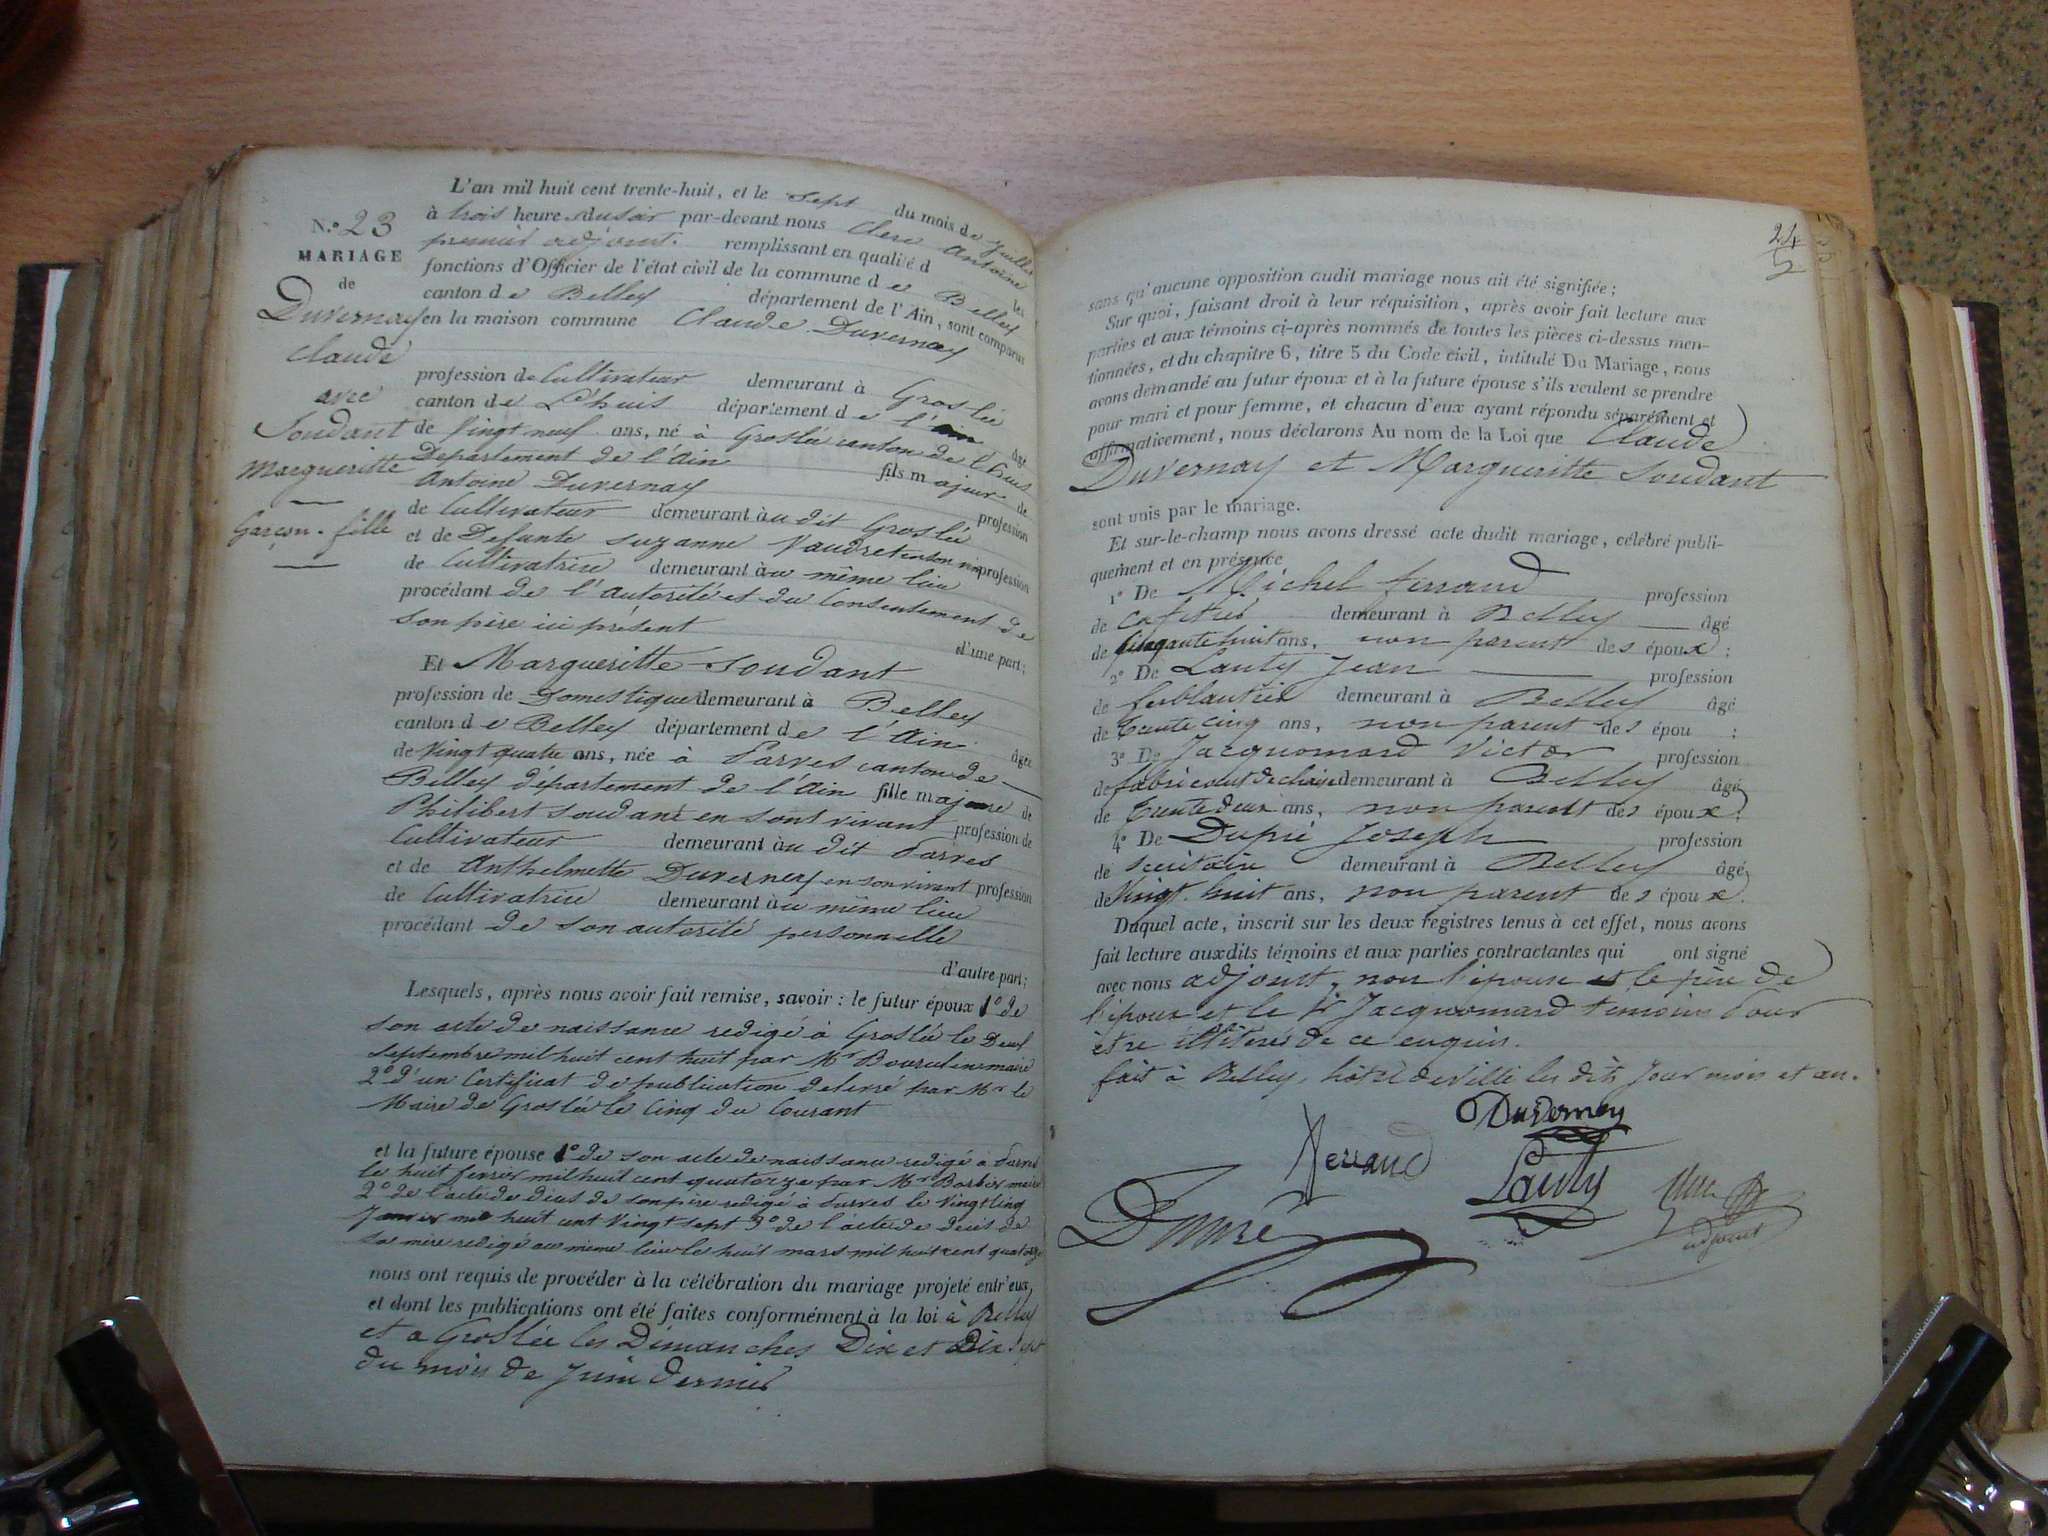 N.º 23
MARIAGE
de
Duvernay
Claude
avec
Soudant
Margueritte
Garçon - fille
L'an mil huit cent trente-huit, et le sept du mois de Juillet
à trois heures du soir par-devant nous Clerc Antoine
premier adjoint. remplissant en qualité d les
fonctions d'Officier de l'état civil de la commune de Belley
canton de Belley département de l'Ain, sont comparus
en la maison commune Claude Duvernay
profession de Cultivateur demeurant à Groslée
canton de L'huis département de l'ain âgé
de Vingt neuf ans, né à Groslée canton de l'huis
Département de l'Ain fils majeur de
Antoine Duvernay profession
de Cultivateur demeurant àu dit Groslée
et de Defunte Suzanne Vaudret en son vivant profession
de Cultivatrice demeurant àu même lieu
procédant de l'autorité et du Consentement de
son père ici présent d'une part;
Et Margueritte Soudant
profession de Domestique demeurant à Belley
canton de Belley département de l'Ain âgée
de Vingt quatre ans, née à Parves canton de
Belley département de l'Ain fille majeure de
Philibert Soudant en sont vivant profession de
Cultivateur demeurant àu dit Parves
et de Anthelmette Duvernay en son vivant profession
de Cultivatrice demeurant àu même lieu
procédant de son autorité personnelle
d'autre part;
Lesquels, après nous avoir fait remise, savoir : le futur époux 1º de
son acte de naissance redigé à Groslée le Deux
septembre mil huit cent huit par Mr maire
2º d'un Certificat de publication delivré par Mr le
Maire de Groslée le Cinq du Courant
et la future épouse 1º de son acte de naissance redigé à Parves
le huit fevrier mil huit cent quatorze par Mr Barbier maire
2º de l'acte de décès de son père redigé à Parves le Vingt Cinq
Janvier mil huit cent Vingt sept 3º de l'acte de decès de
sa mère redigé au même lieu le huit mars mil huit cent quatorze
nous ont requis de procéder à la célébration du mariage projeté entr'eux,
et dont les publications ont été faites conformément à la loi à Belley
et a Groslée les Dimanches Dix et Dix sept
du mois de Juin dernier
24
sans qu'aucune opposition audit mariage nous ait été signifiée;
Sur quoi, faisant droit à leur réquisition, après avoir fait lecture aux
parties et aux témoins ci-après nommés de toutes les pièces ci-dessus men-
tionnées, et du chapitre 6, titre 5 du Code civil, intitulé Du Mariage, nous
avons demandé au futur époux et à la future épouse s'ils veulent se prendre
pour mari et pour femme, et chacun d'eux ayant répondu séparément et
affirmativement, nous déclarons Au nom de la Loi que Claude
Duvernay et Margueritte Soudant
sont unis par le mariage.
Et sur-le-champ nous avons dressé acte dudit mariage, célébré publi-
quement et en présence
1º De Michel ferrand profession
de Cafetier demeurant à Belley âgé
de Cinquante huit ans, non parent des époux;
2º De Lauly Jean profession
de ferblantier demeurant à Belley âgé
de Trente cinq ans, non parent des épou ;
3º De Jacquomard Victor profession
de fabricant de chaise demeurant à Belley âgé
de Trente deux ans, non parent des époux;
4º De Dupré Joseph profession
de demeurant à Belley âgé
de Vingt huit ans, non parent des époux.
Duquel acte, inscrit sur les deux registres tenus à cet effet, nous avons
fait lecture auxdits témoins et aux parties contractantes qui ont signé
avec nous adjoint, non l'épouse et le père de
l'époux et le Sr Jacquomard temoins Pour
être illitérés de ce enquis.
fait à Belley, hôtel de Ville les dits Jour mois et an.
Duvernay
Ferrand
Lauly
Dupré
adjoint